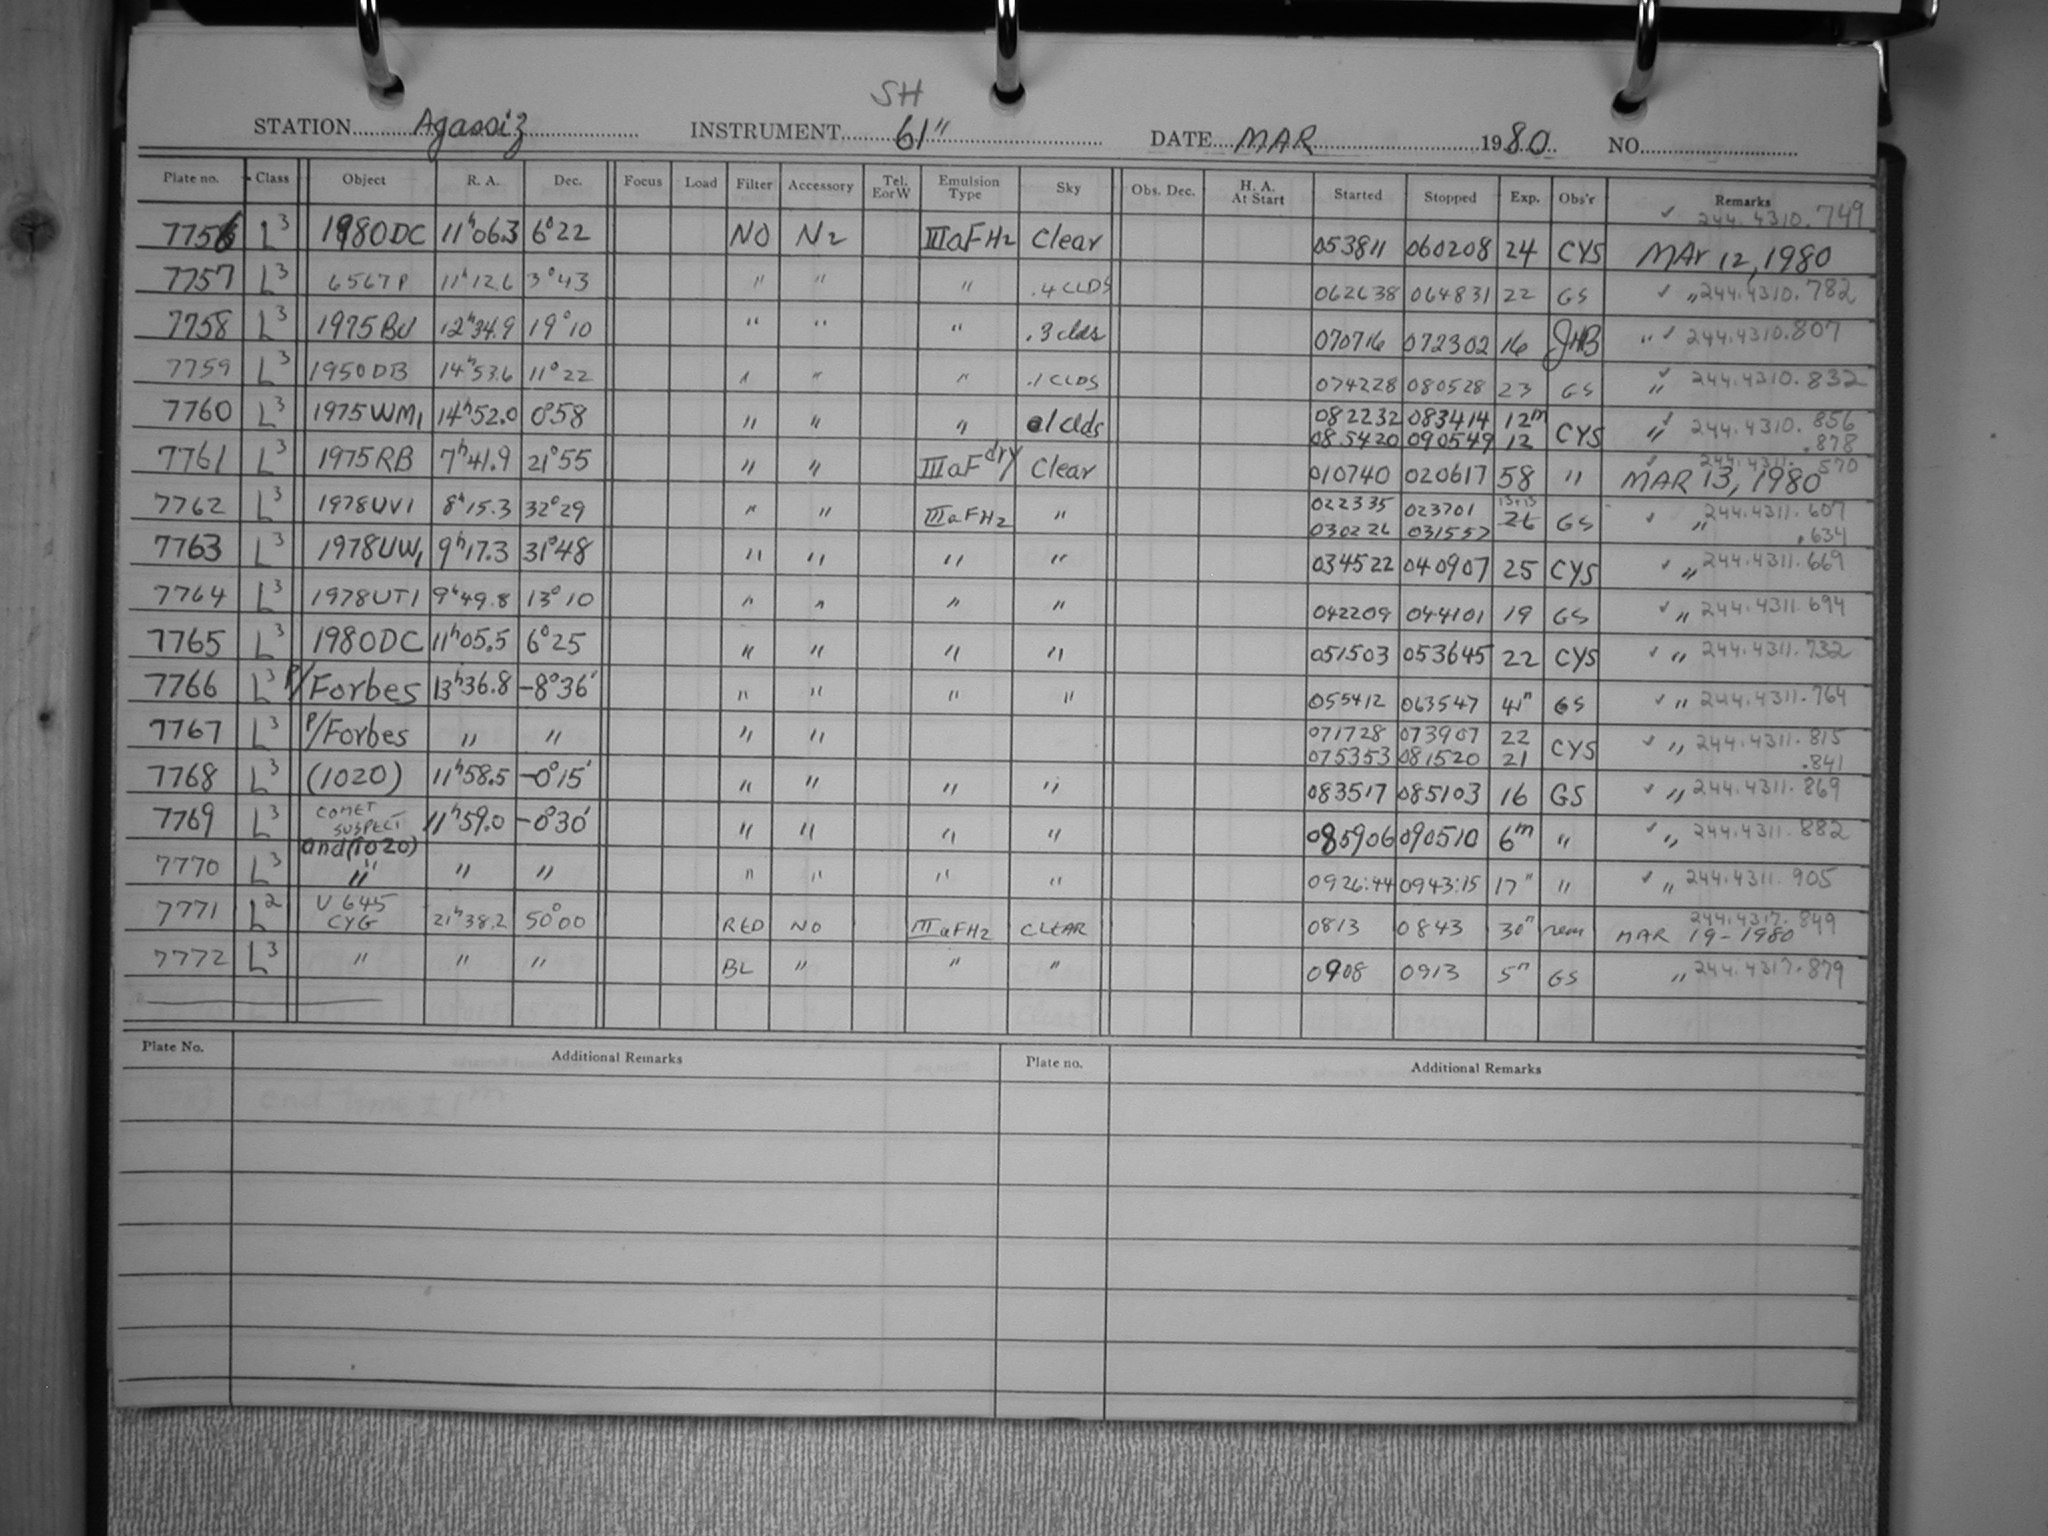 SH
STATION Agassiz INSTRUMENT 61" DATE MAR 1980 NO.
Plate no. Class Object R. A. Dec. Focus Load Filter Accessory Tel. EorW Emulsion Type Sky Obs. Dec. H. A. At Start Started Stopped Exp. Obs'r Remarks
7756 L3 1980DC 11h06.3 6°22 NO N2 IIIaFH2 Clear 053811 060208 24 CYS ✓ 244.4310.749 MAr 12, 1980
7757 L3 6567P 11h12.6 3°43 " " " .4 CLDS 062638 064831 22 GS ✓ " 244.4310.782
7758 L3 1975BU 12h34.9 19°10 " " " .3 clds 070716 072302 16 JHB " ✓ 244.4310.807
7759 L3 1950DB 14h53.6 11°22 " " " .1 CLDS 074228 080528 23 GS ✓ " 244.4310.832
7760 L3 1975WM1 14h52.0 0°58 " " " .1 clds 082232 083414 12m CYS ✓ " 244.4310.856
085420 090549 12 .878
7761 L3 1975RB 7h41.9 21°55 " " IIIaF dry Clear 010740 020617 58 " ✓ 244.4311.570 MAR 13, 1980
7762 L3 1978UV1 8h15.3 32°29 " " IIIaFH2 " 022335 023701 13+13 26 GS ✓ " 244.4311.607
030226 031557 .634
7763 L3 1978UW1 9h17.3 31°48 " " " " 034522 040907 25 CYS ✓ " 244.4311.669
7764 L3 1978UT1 9h49.8 13°10 " " " " 042209 044101 19 GS ✓ " 244.4311.694
7765 L3 1980DC 11h05.5 6°25 " " " " 051503 053645 22 CYS ✓ " 244.4311.732
7766 L3 P/Forbes 13h36.8 -8°36' " " " " 055412 063547 41m GS ✓ " 244.4311.764
7767 L3 P/Forbes " " " " 071728 073907 22 CYS ✓ " 244.4311.815
075353 081520 21 .841
7768 L3 (1020) 11h58.5 -0°15' " " " " 083517 085103 16 GS ✓ " 244.4311.869
7769 L3 COMET SUSPECT and (1020) 11h59.0 -0°30' " " " " 085906 090510 6m " ✓ " 244.4311.882
7770 L3 " " " " " " " 0926:44 0943:15 17m " ✓ " 244.4311.905
7771 L2 V645 CYG 21h38.2 50°00 RED NO IIIaFH2 CLEAR 0813 0843 30m rem 244.4317.849 MAR 19-1980
7772 L3 " " " BL " " " 0908 0913 5m GS " 244.4317.879
Plate No. Additional Remarks Plate no. Additional Remarks